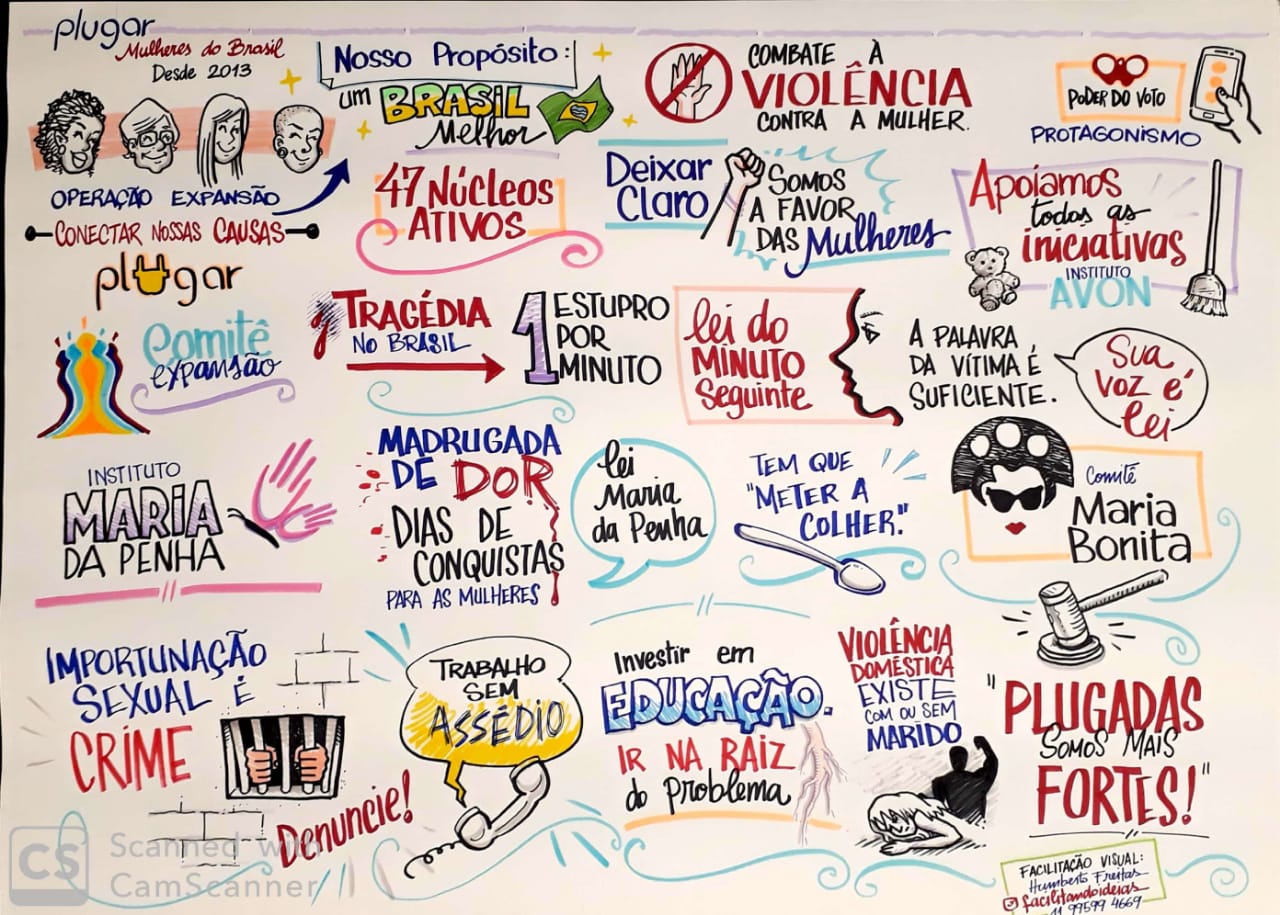 plugar
Mulheres do Brasil
Desde 2013
OPERAÇÃO EXPANSÃO
CONECTAR NOSSAS CAUSAS
plugar
Comitê
expansão
Nosso Propósito:
um BRASIL
Melhor
47 NÚCLEOS
ATIVOS
COMBATE À
VIOLÊNCIA
CONTRA A MULHER.
PODER DO VOTO
PROTAGONISMO
Deixar
Claro
SOMOS
A FAVOR
DAS Mulheres
Apoiamos
todas as
iniciativas
INSTITUTO
AVON
TRAGÉDIA
NO BRASIL
1 ESTUPRO
POR
MINUTO
lei do
MINUTO
Seguinte
A PALAVRA
DA VÍTIMA É
SUFICIENTE.
Sua
voz é
lei
INSTITUTO
MARIA
DA PENHA
MADRUGADA
DE DOR
DIAS DE
CONQUISTAS
PARA AS MULHERES
lei
Maria
da Penha
TEM QUE
"METER A
COLHER."
Comitê
Maria
Bonita
IMPORTUNAÇÃO
SEXUAL É
CRIME
Denuncie!
TRABALHO
SEM
ASSÉDIO
Investir em
EDUCAÇÃO.
IR NA RAIZ
do problema
VIOLÊNCIA
DOMÉSTICA
EXISTE
COM OU SEM
MARIDO
"PLUGADAS
SOMOS MAIS
FORTES!"
FACILITAÇÃO VISUAL:
Humberto Freitas
facilitandoideias
11 99599 4669
CS Scanned with
CamScanner